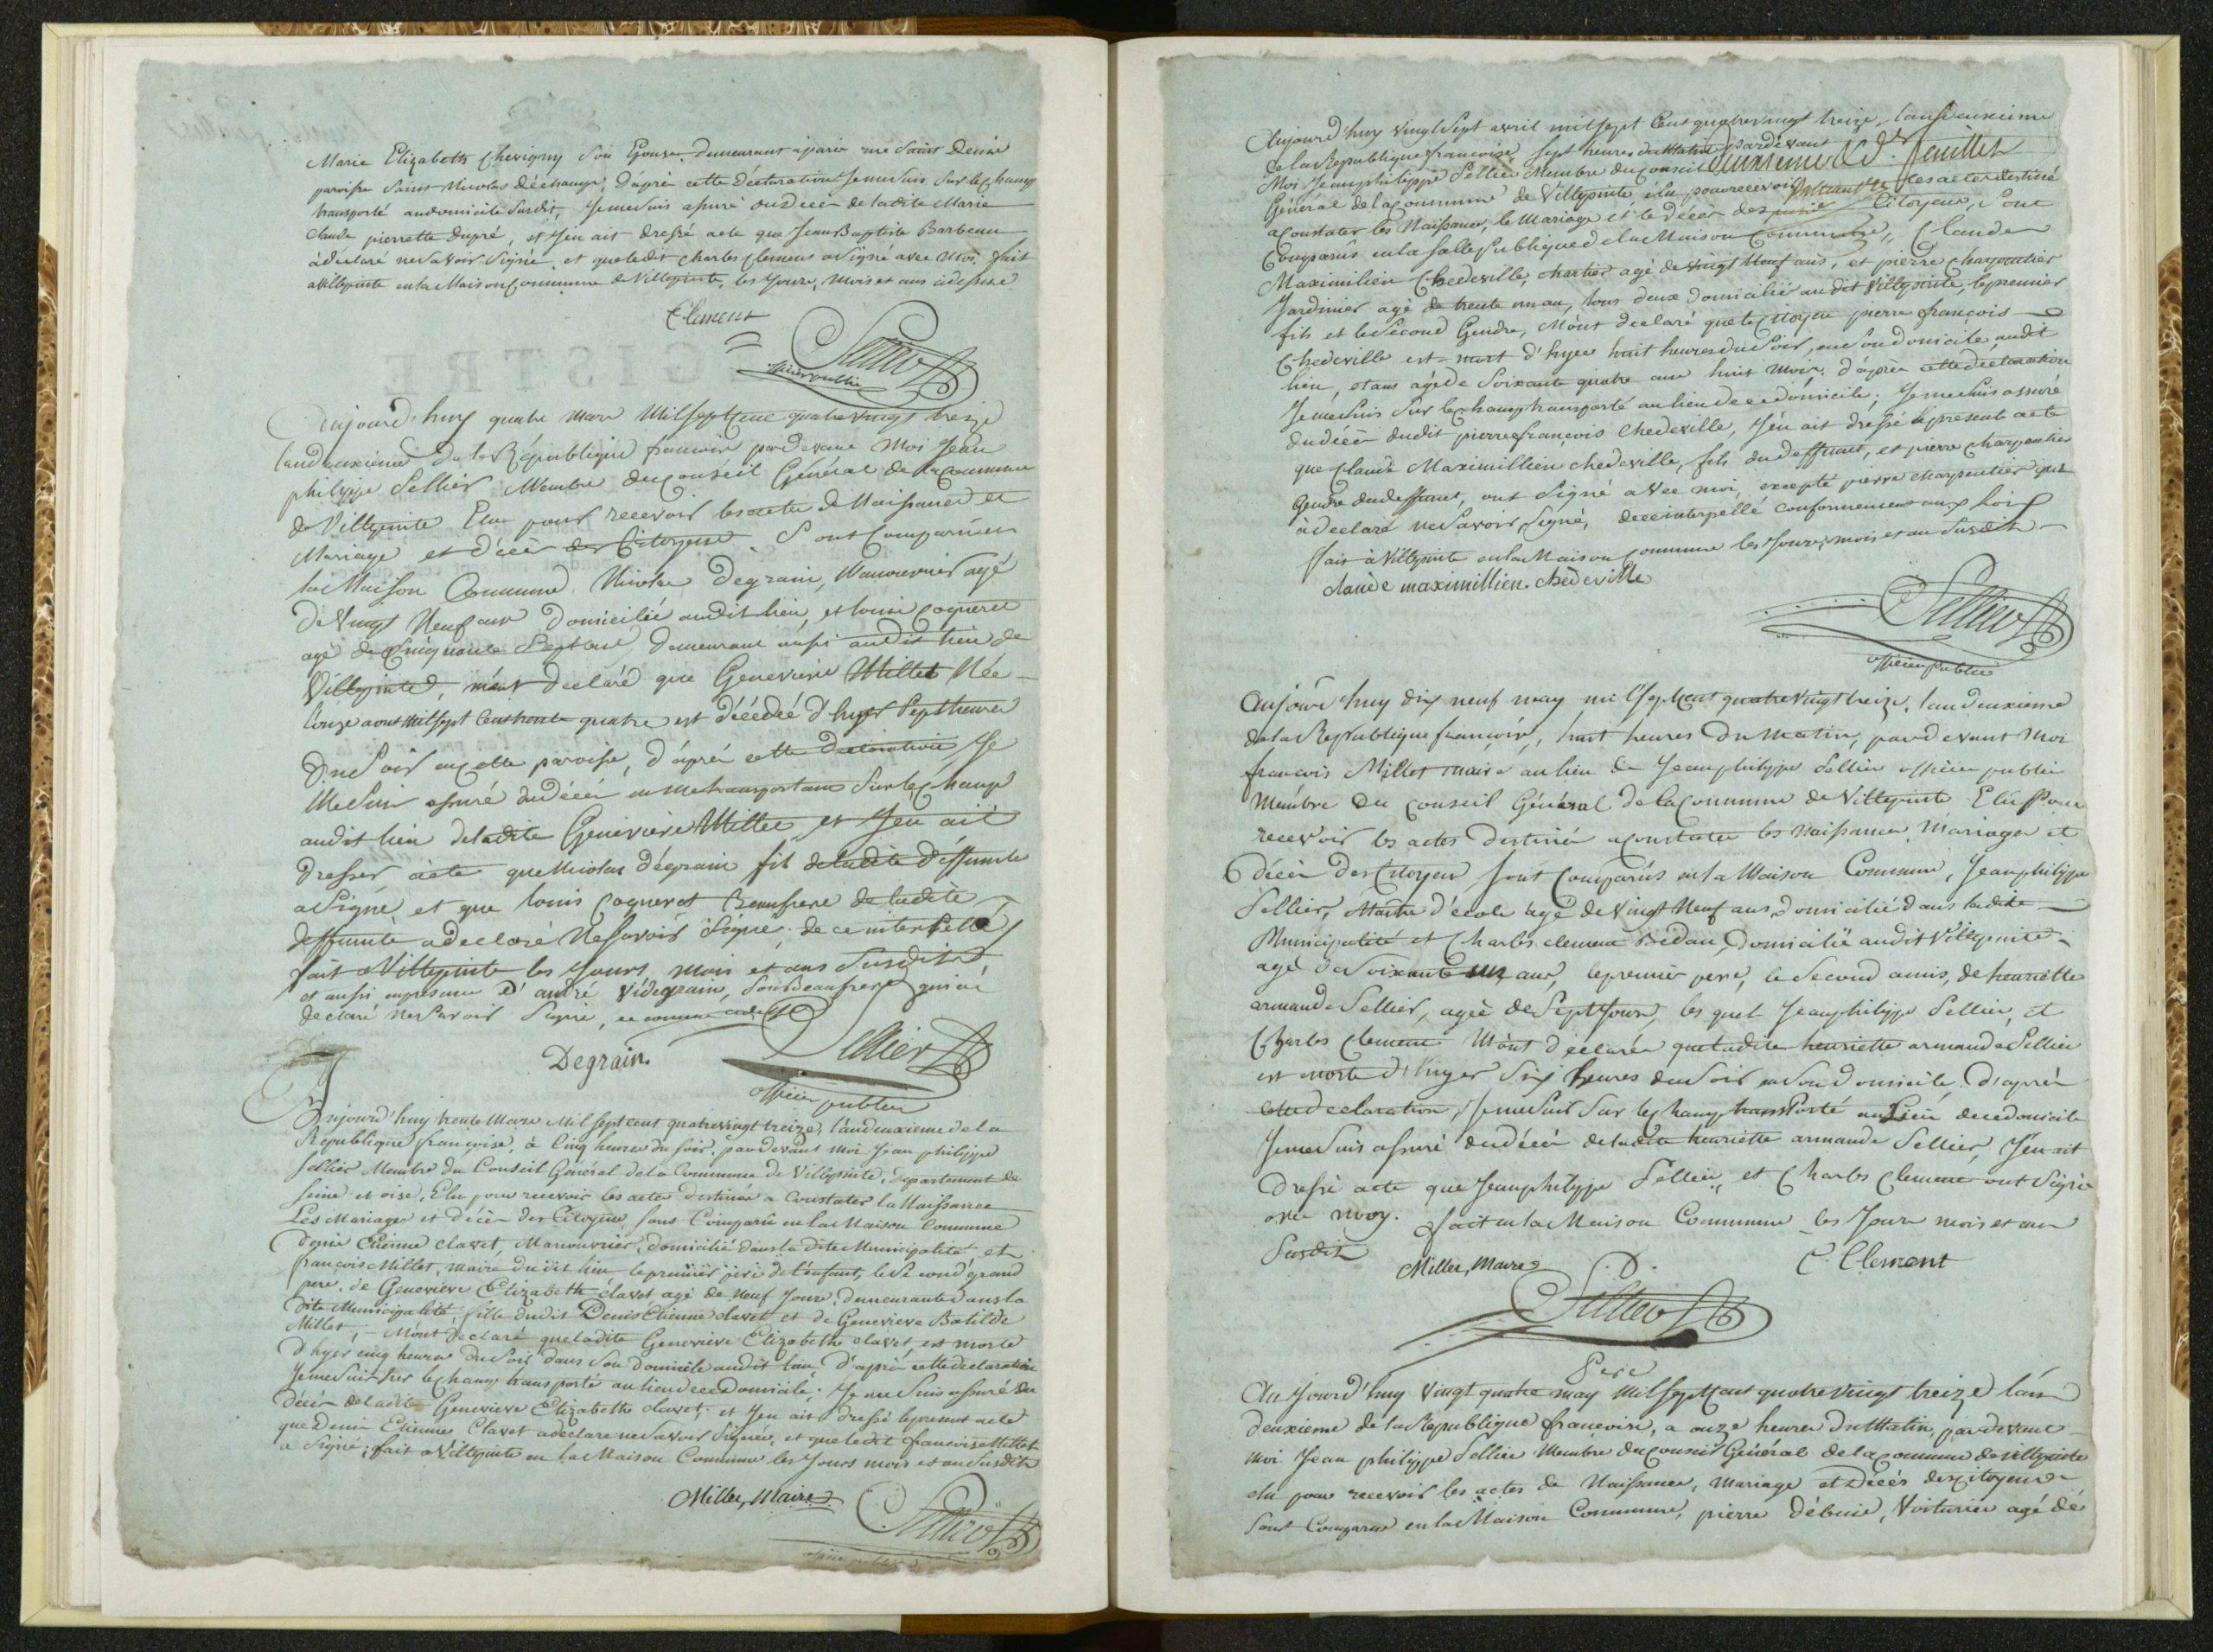 Marie Elizabeth Chevigny Son Epouse, demeurant à paris rue Saint Denis
paroisse Saint Nicolas déchamps, d'après cette déclaration Je me Suis Sur le Champ
transporté audomicile Susdit, Je me Suis assuré du Décès de ladite Marie
Claude pierrette dupré, et j'en ait dressé acte que Jean Baptiste Barbeau
à déclaré ne Savoir Signé, et que ledit Charles Clement a Signé avec Moi. fait
a Villepinte en la Maison Commune de Villepinte, les Jours, Mois et ans ci dessus
Clement
Sellier
officier public
Aujourd'huy quatre Mars Mil Sept Cent quatre vingt treize
land euxieme de la République francoise pardevant Moi Jean
philippe Sellier Membre du Conseil Général de la Commune
de Villepinte Elu pour recevoir les actes de Naissances et
Mariage et Décès des Citoyens. Sont Comparus en
la Maison Commune Nicolas Degrain, Manouvrier agé
de Vingt Neuf ans Domicilié audit lieu, et louis Cogneret
agé de Cinquante Sept ans demeurant aussi audit lieu de
Villepinte, m'ont declaré que Genevieve Millet Née
l'onze aout Mil sept Cent trente quatre est décédeé d'hyer Sept heures
du Soir en cette paroisse, d'àprés cette declaration, Je
Me Suis assuré du décès en me transportant Sur le Champ
audit lieu de ladite Genevieve Millet et j'en ait
dresser àcte que Nicolas Dégrain fils de ladite déffunte
a Signé et que louis Cogneret Beaufrere de ladite
deffunte a declaré Ne Savoir Signé de ce interpellé
fait a Villepinte les Jours, mois et ans Susdits
et aussi en presence D'andré Videgrain, Son Beaufrere qui a
declaré ne Savoir Signé,
Degrain.
Sellier
officier public
Aujourd'huy trente Mars Mil sept cent quatrevingt treize, l'an deuxieme de la
République françoise, à Cinq heures du soir, pardevant moi Jean philippe
Sellier Membre du Conseil Général de la Commune de Villepinte, departement de
Seine et oise, Elu pour recevoir les actes destinés a Constater la Naissance
Les Mariages et décès des Citoyens, sont Comparû en la Maison Commune
Denis Etienne clavet, Manouvrier, domicilié dans la dite Municipalité, et
françois Millet, maire dudit lieu le premier pere de l'enfant, le Second grand
pere, de Genevieve Elizabeth clavet agé de Neuf Jours, demeurante dans la
dite Municipalité, fille dudit Denis Etienne clavet et de Genevieve Batilde
Millet, M'ont declaré que ladite Genevieve Elizabeth clavet, est morte
d'hyer cinq heures du Soir dans Son domicile audit lieu, D'après cette declaration
Je me Suis Sur le Champ transporté au lieu de ce Domicile; Je me Suis assuré du
Décès de ladite Genevieve Elizabeth clavet; et J'en ait dressé le present acte
que Denis Etienne Clavet a declaré ne Savoir Signer, et que ledit francois Millet
a Signé; fait a Villepinte en la Maison Commune les Jours mois et an Susdits
Millet, Maire
Sellier
officier public
deuxieme & dr. feuillet
Aujourd'huy vingt Sept avril mil Sept Cent quatrevingt treize, l'an deuxieme
de la Republique francoise, Sept heures du Matin, pardevant
Moi Jean philippe Sellier Membre du Conseil
Général de la Commune de Villepinte, élu pour recevoir les actes destiné
a Constater les Naissances, le Mariage et le décès des Citoyens, Sont
Comparûs en la Salle publique de la Maison Commune, Claude
Maximilien Chedeville, chartier agé de vingt Neuf ans, et pierre Charpentier
Jardinier agé de trente un an, tous deux domicilié audit Villepinte, le premier
fils et le Second Gendre, M'ont declaré que le Citoyen pierre françois
Chedeville est mort d'hyer huit heures du Soir, en Son domicile, audit
lieu, étans agé de Soixante quatre ans huit Mois. d'après cette declaration
Je me Suis Sur le Champ transporté au lieu de ce domicile; Je me Suis assuré
du décès dudit pierre françois Chedeville, J'en ait dressé le present acte
que Claude Maximillien chedeville, fils du deffunt, et pierre Charpentier
gendre du deffunt, ont Signé avec moi, excepté pierre charpentier qui
à declaré ne Savoir Signé, de ce interpellé conformement aux Loix
fait à Villepinte en la Maison Commune les Jours, mois et an Susdits
claude maximillien. chèdeville
Sellier
officier public
Aujour'huy dix neuf may mil Sept Cent quatre vingt treize. l'an deuxieme
de la Republique francoise, huit heures du Matin, pardevant Moi
francois Millet maire au lieu de Jean philippe Sellier officier public
Membre du Conseil Général de la Commune de Villepinte Elu Pour
recevoir les actes destinés a Constater les Naissances Mariages et
Décès des Citoyens Sont Comparûs en la Maison Commune, Jean philippe
Sellier, Maitre d'école agé de Vingt Neuf ans domicilié dans ladite
Municipalité et Charles clement Bédan, Domicilié audit Villepinte
agé de Soixante un ans, le premier pere, le Second amis, de henriette
armande Sellier, agée de Sept Jours, les quels Jean philippe Sellier, et
Charles Clement M'ont declarés que ladite henriette armande Sellier
est morte d'hyer Six heures du Soir en Son domicile. D'après
cette declaration, Je me Suis Sur le Champ transPorté au Lieu de ce domicile
Je me Suis assuré du décès de ladite henriette armande Sellier, J'en ait
Dressé acte que Jean philippe Sellier, et Charles Clement ont Signé
avec moy. fait en la Maison Commune les Jours mois et an
Susdits
Millet, Maire
C. Clement
Sellier
Pere
Aujourd'huy Vingt quatre may Mil Sept Cent quatre vingt treize l'an
deuxieme de la Republique francoise, a onze heures du Matin, pardevant
moi Jean philippe Sellier Membre du Conseil Général de la Commune de villepinte
elu pour recevoir les actes de Naissances, Mariage et Décés des Citoyens
Sont Comparus en la Maison Commune, pierre Débuire, Voiturier agé de